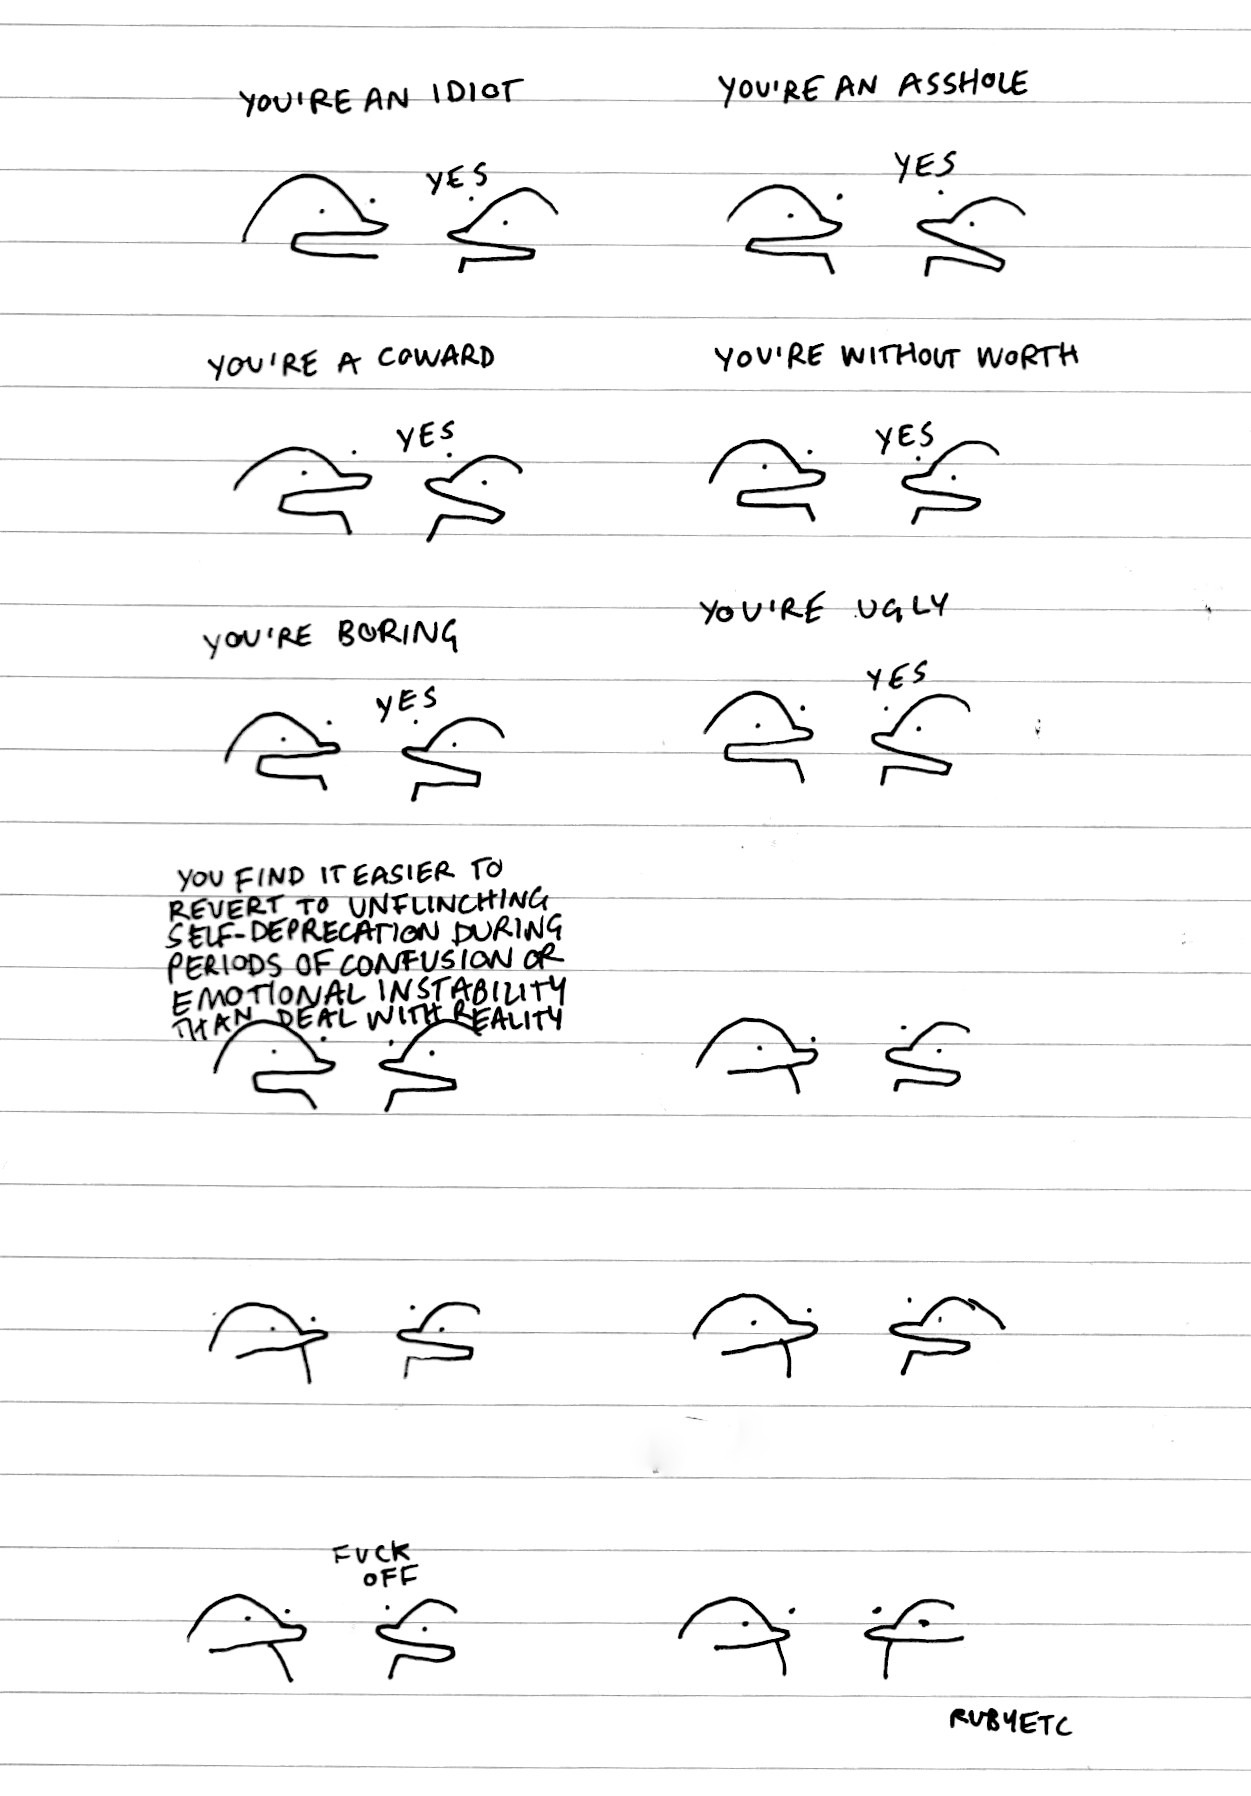 YOU'RE AN IDIOT
YES
YOU'RE AN ASSHOLE
YES
YOU'RE A COWARD
YES
YOU'RE WITHOUT WORTH
YES
YOU'RE BORING
YES
YOU'RE UGLY
YES
YOU FIND IT EASIER TO
REVERT TO UNFLINCHING
SELF-DEPRECATION DURING
PERIODS OF CONFUSION OR
EMOTIONAL INSTABILITY
THAN DEAL WITH REALITY
FUCK
OFF
RUBYETC